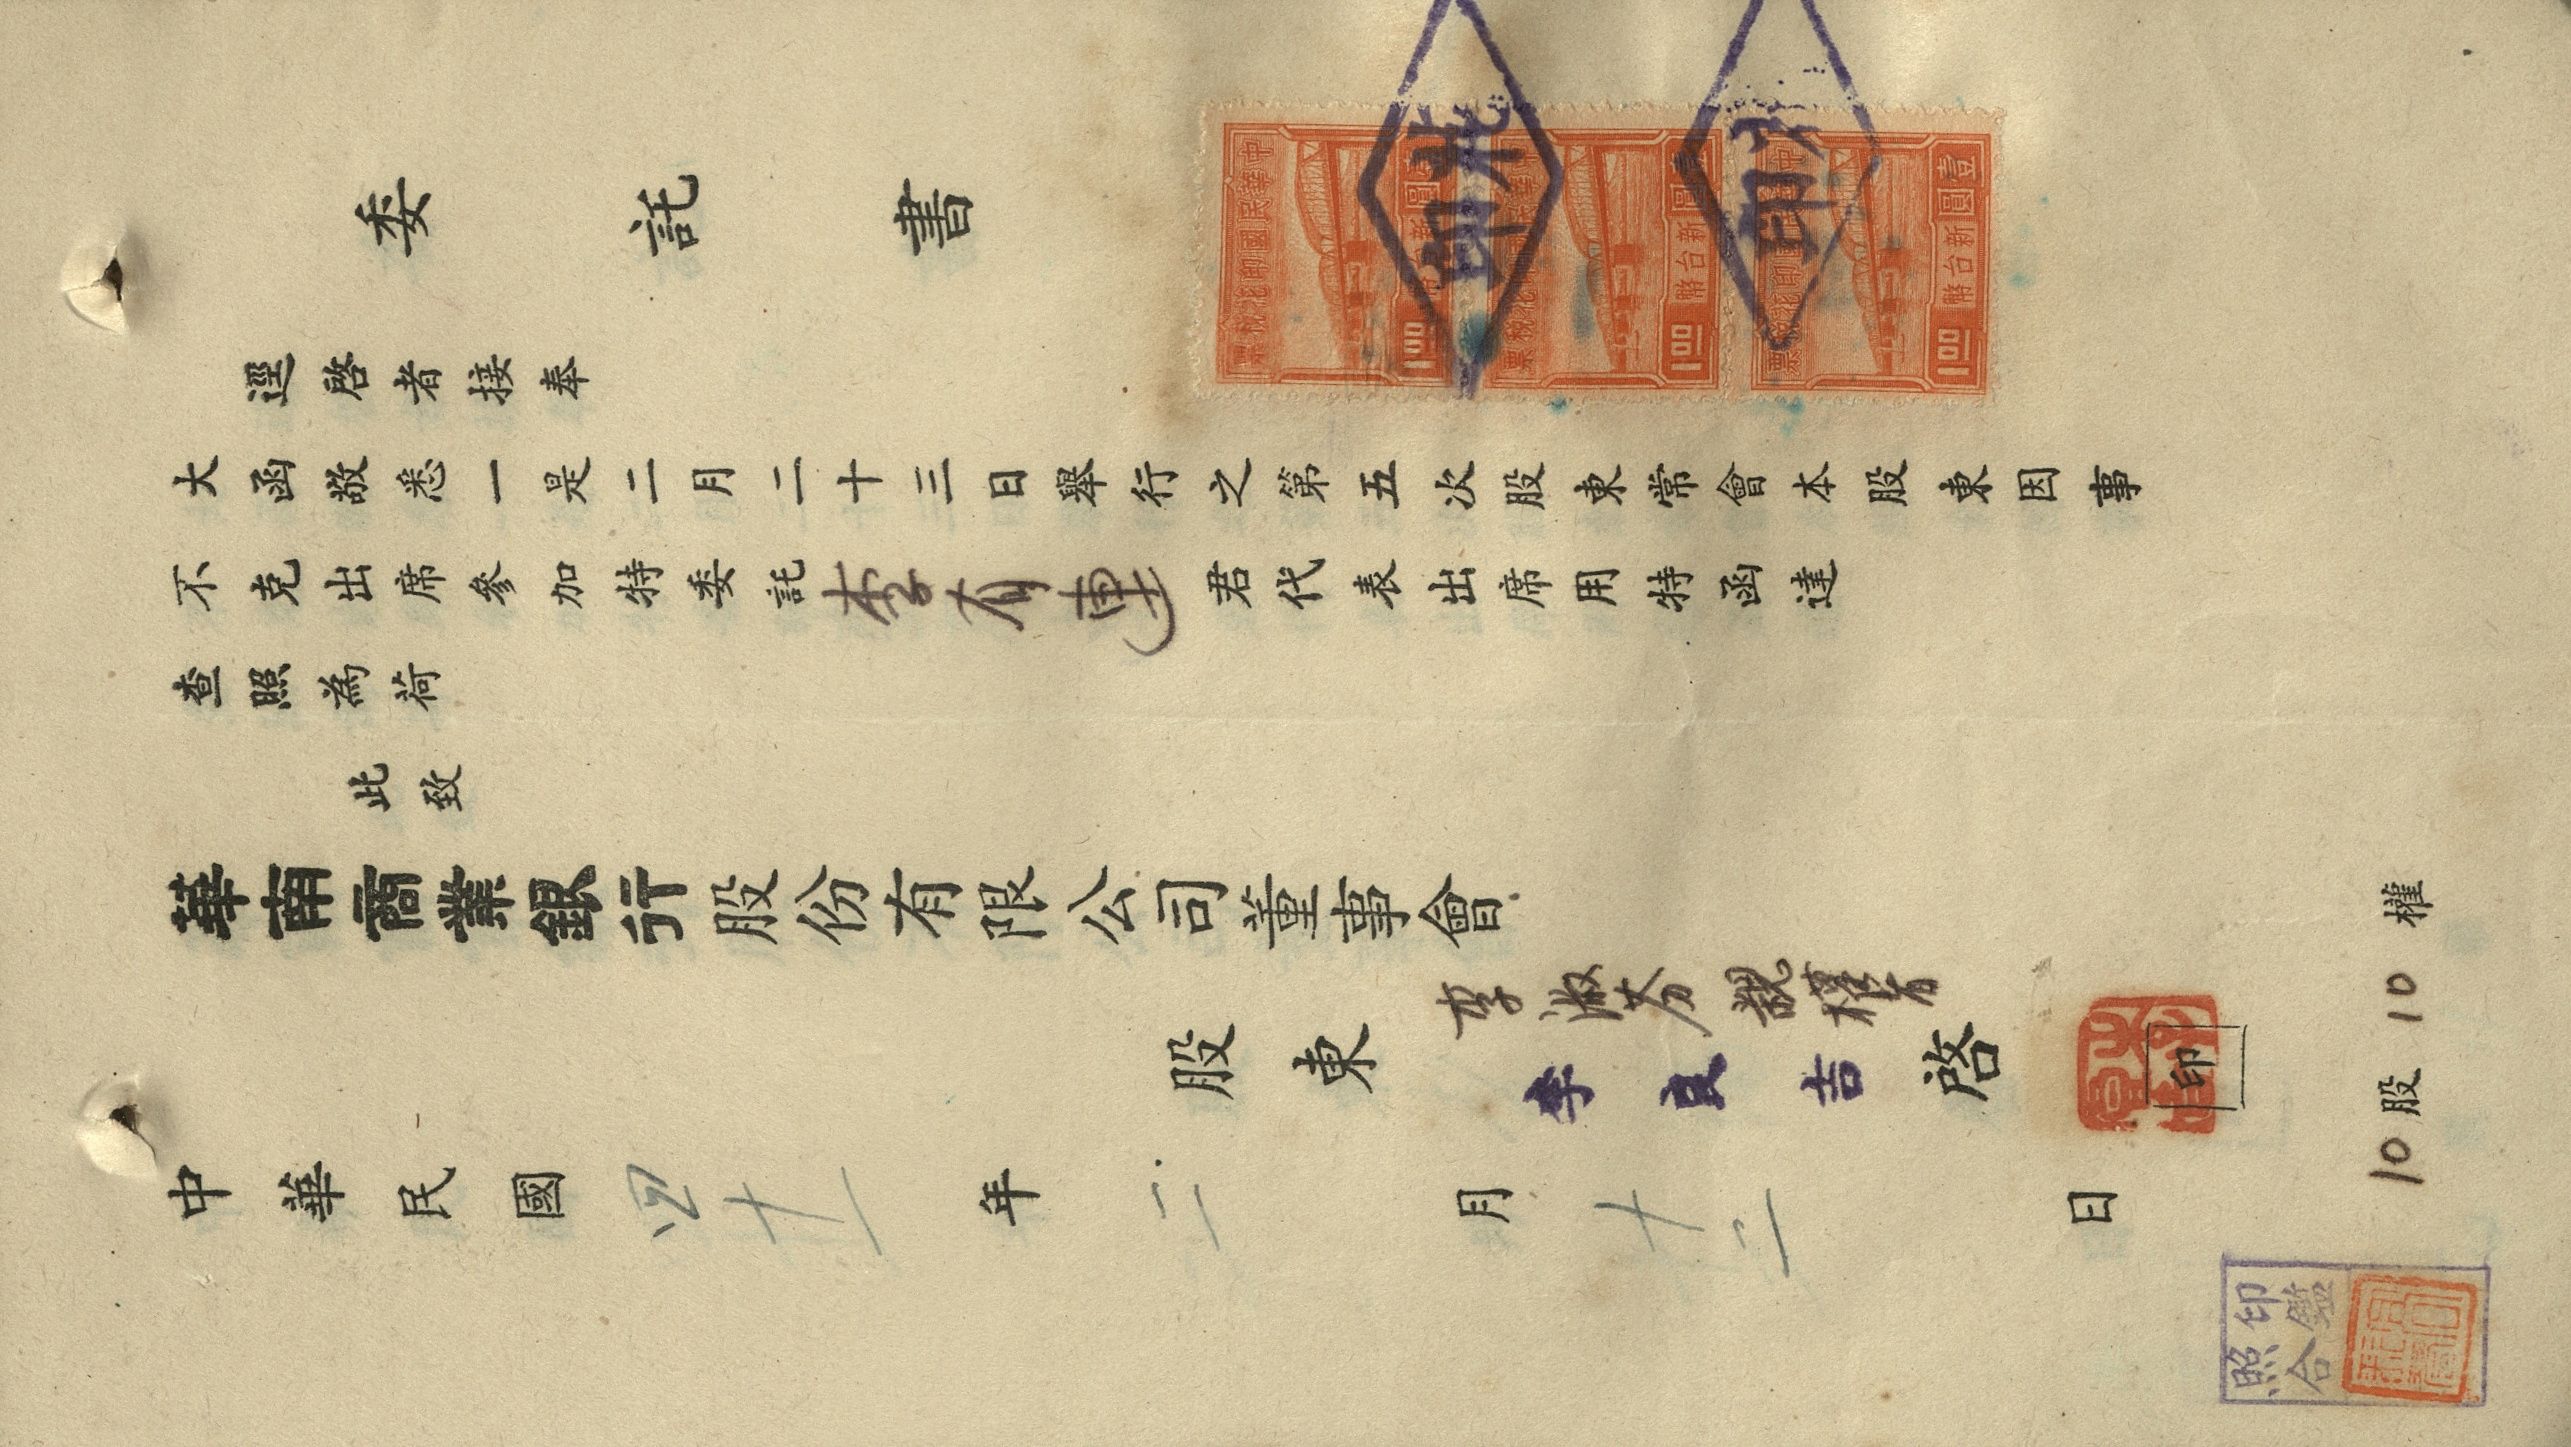 委託書
逕啓者接奉
大函敬悉一是二月二十三日舉行之第五次股東常會本股東因事
不克出席參加特委託李有連君代表出席用特函達
查照為荷
此致
華南商業銀行股份有限公司董事會
股東
李淑芬親權者
李良吉
啓
印
中華民國四十一年二月十二日
10股10權
印鑑
照合
中華民國印花稅票
壹圓
新台幣
1.00
壹圓
新台幣
1.00
中華民國印花稅票
壹圓
新台幣
1.00